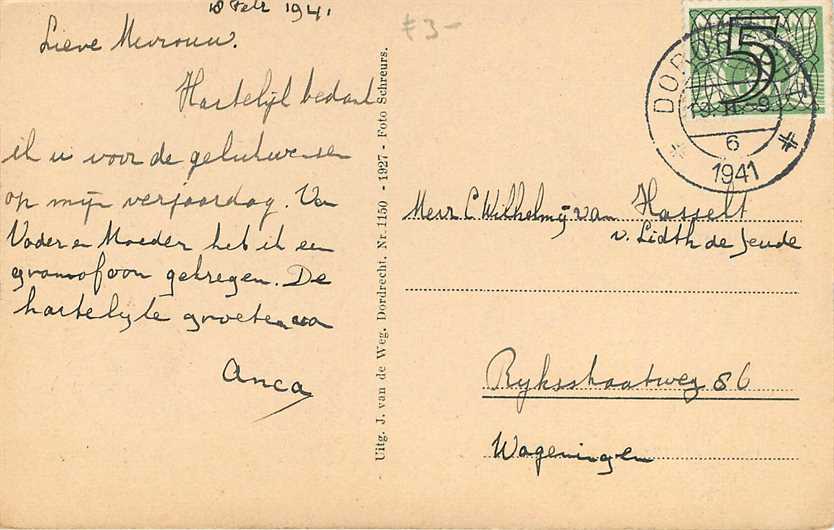 18 Febr 1941
Lieve Mevrouw.
Hartelijk bedankt
ik u voor de gelukwensen
op mijn verjaardag. Van
Vader en Moeder heb ik een
gramofoon gekregen. De
hartelijke groeten van
Anca
Uitg. J. van de Weg. Dordrecht. Nr. 1150 - 1927 - Foto Schreurs.
f 3-
5
DORDRECHT
6
1941
Mevr C Wilhelmij van Hasselt
v. Lidth de Jeude
Rijksstraatweg 86
Wageningen